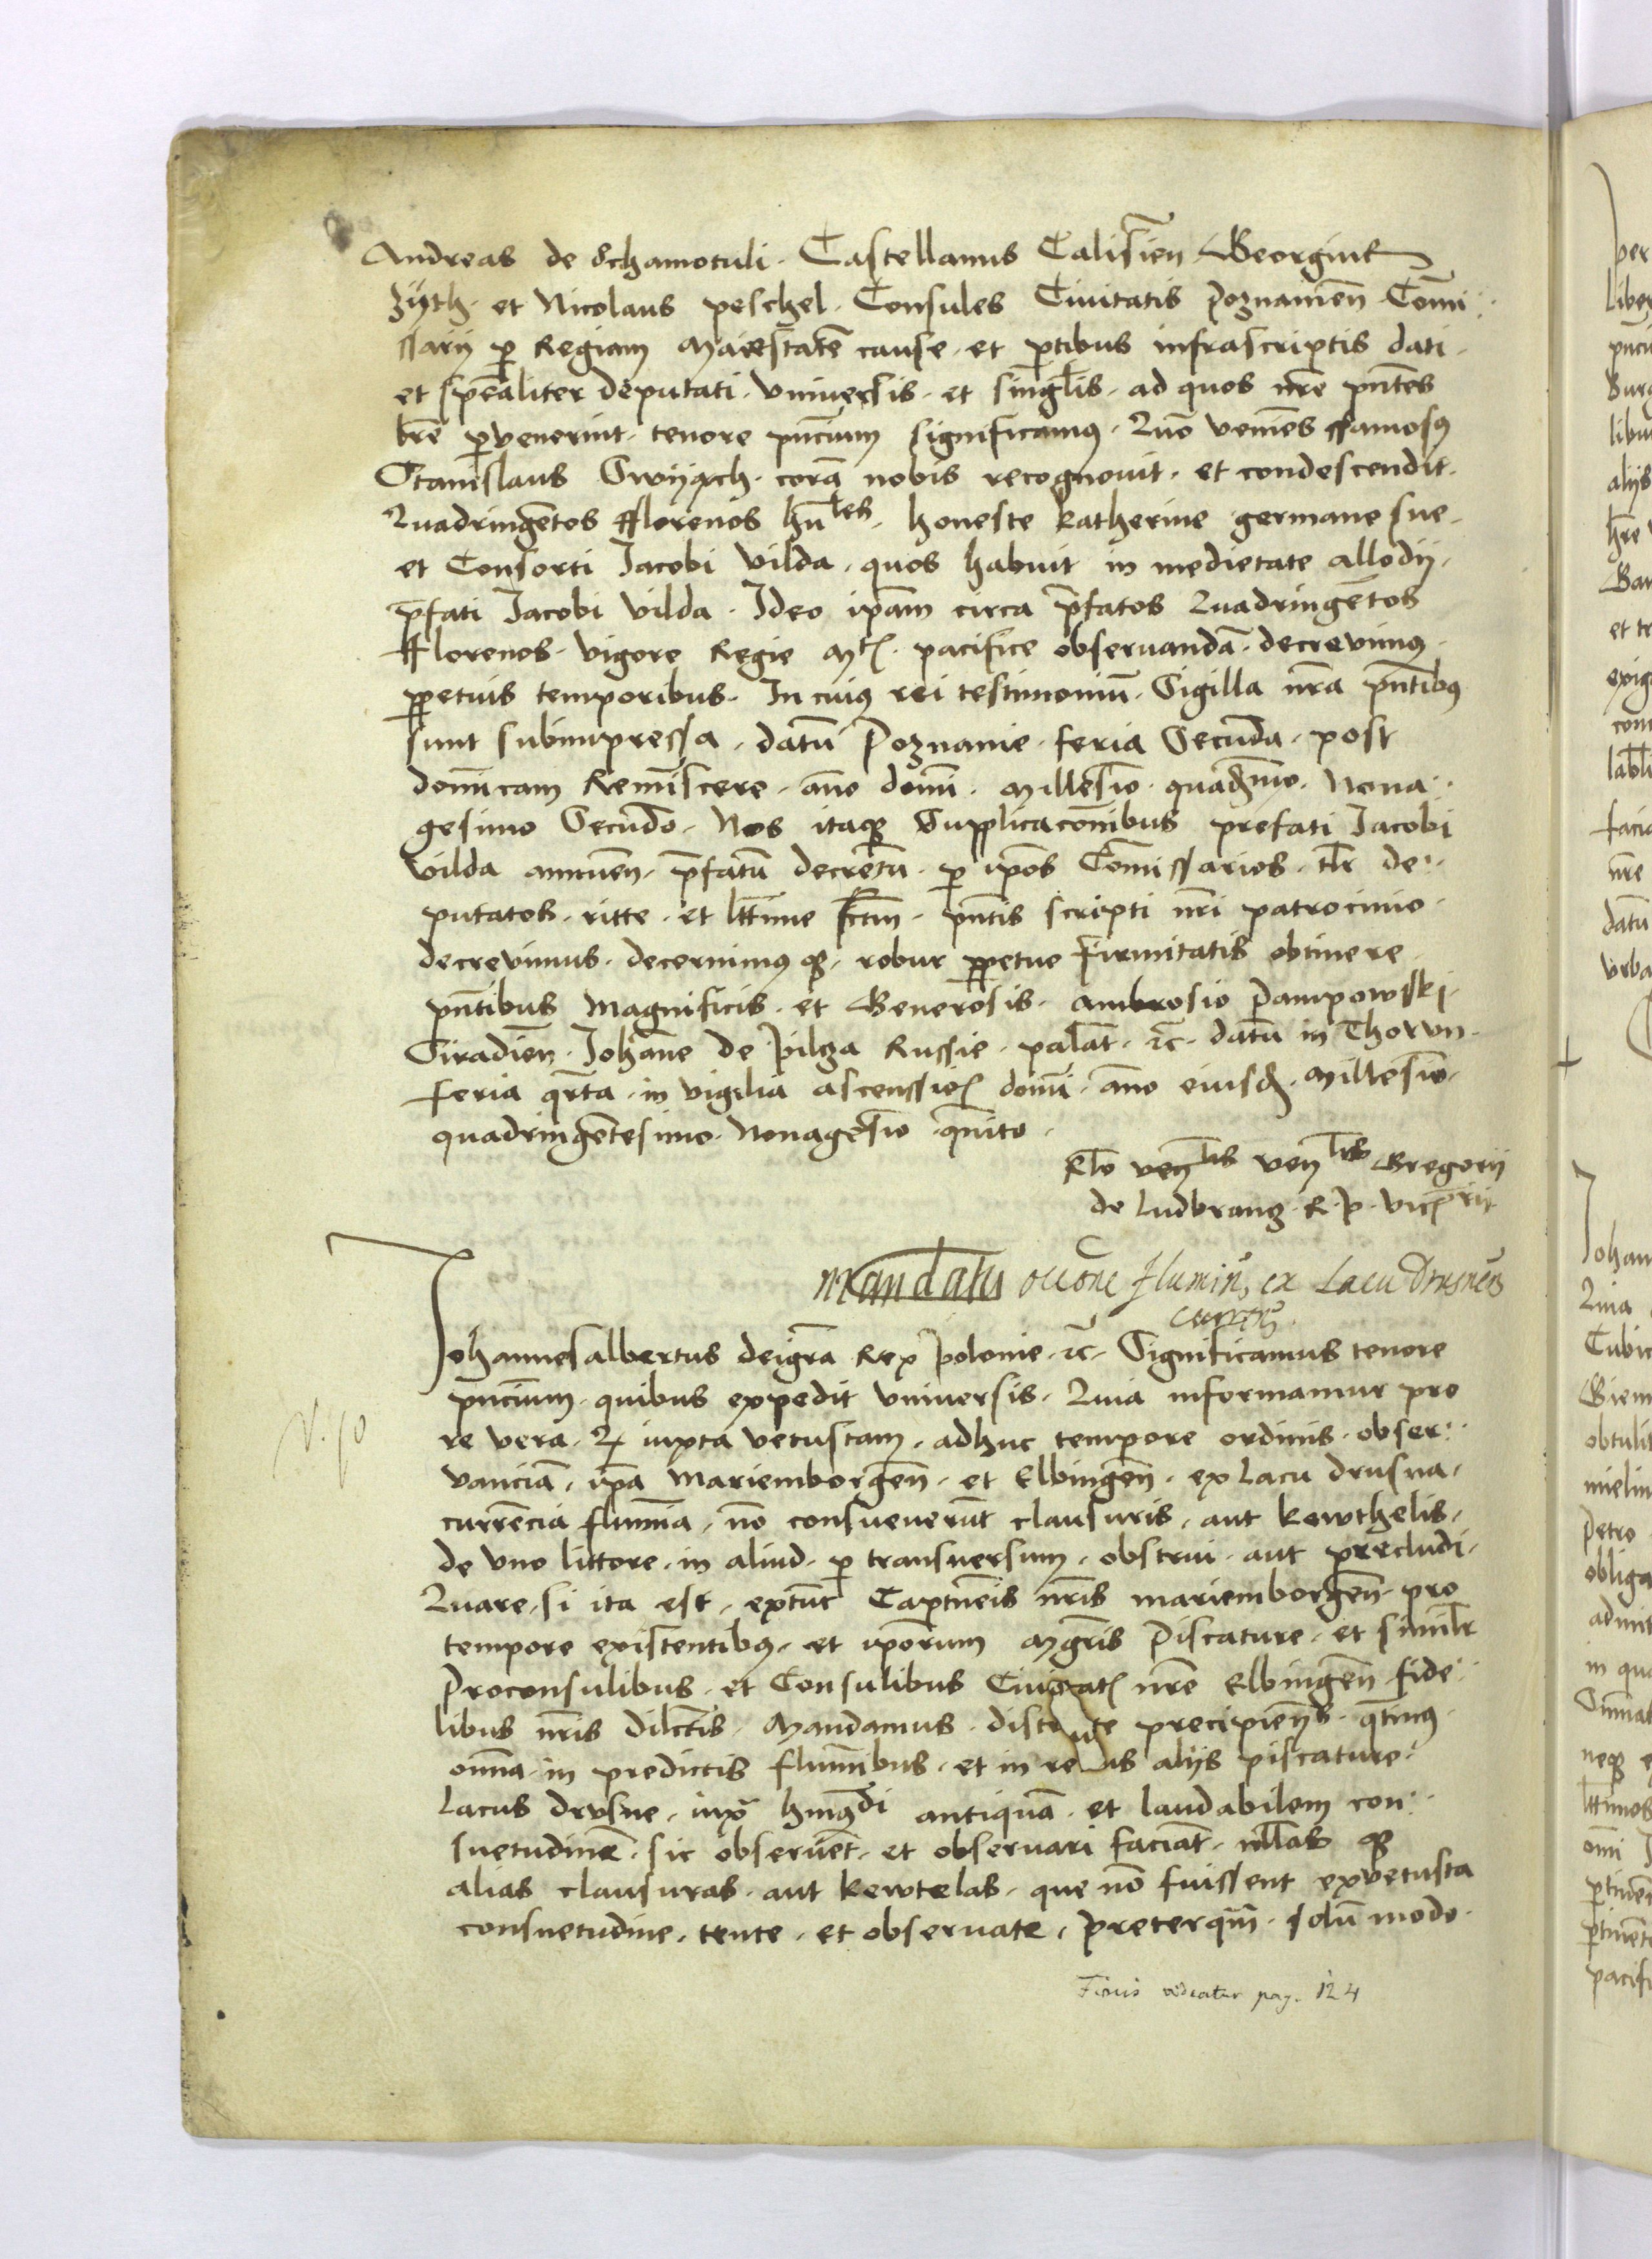 Andreas de Schamotuli. Castellanus Calisien̄ Georgius
Zÿth. et Nicolaus peschel. Consules Ciuitatis Poznanien̄ Com̄i:
ssarij ꝑ Regiam Maiestatē cause. et ꝑtibus infrascriptis dati.
et sp̄ealiter deputati. vniuersis. et singl̄is. ad quos nr̄e pn̄tes
lr̄e ꝑvenerint. tenore pn̄cium significamꝰ. Quō veniēs ffamosꝰ
Stanislaus Swÿąch. corā nobis recognouit. et condescendit.
Quadringētos fflorenos hūles. honeste katherine germane sue.
et Consorti Jacobi vilda. quos habuit in medietate allodij.
p̄fati Jacobi vilda. Ideo ip̄am circa p̄fatos Quadringētos
fflorenos. vigore Regie Mtꝭ. pacifice obseruandā. decreuimꝰ.
ꝑpetuis temporibus. In cuiꝰ rei testimoniū. Sigilla nr̄a pn̄tibꝰ
sunt subimpressa. datū Poznanie. feria Secūda. post
domīcam Remīscere. ān̄o domī. Millesīo. quadr̄mo. Nona:
gesimo Secūdo. Nos itaqꝫ Supplicacōnibus prefati Jacobi
vilda annuēn. p̄fatū decretū. ꝑ ip̄os Com̄issarios. tl̄r de:
putatos. ritte. et ltt̄ime fc̄tm. pn̄tis scripti nr̄i patrocinio.
decrevimus. decernimꝰ qꝫ. robur ꝑpetue firmitatis obtinere.
pn̄tibus Magnificis. et Generosis. Ambrosio Pampowsskj.
Siradien̄. Johāne de Pilcza Russie. palat̄. ꝛc̄. datū in Thorun.
feria qr̄ta. in vigilia ascenssioꝭ domī. ān̄o eiusdꝫ. Millesīo.
quadringētesimo. Nonagesīo qn̄to.
Rl̄o ven̄lis ven̄lis Gregorij
de Ludbrancz. R. P. vicēꝑrij
Mandatū occ̄one flumin̄, ex Lacu Drusnen̄
currēn̄.
Johannesalbertus deigr̄a Rex Polonie. ꝛc̄. Significamus tenore
pn̄cium. quibus expedit vniuersis. Quia informamur pro
re vera. Qꝫ iuxta vetustam. adhuc tempore ordinis. obser:
vanciā. ip̄a Mariemborgen̄. et Elbingen̄. ex lacu drusna.
currēcia flumīa. nō consueuerūt clausuris. aut kewthelis.
de vno littore. in aliud. ꝑ transuersum. obstrui. aut precludi.
Quare. si ita est. extūc Capitn̄eis nr̄is mariemborgen̄. pro
tempore existentibꝰ. et ip̄orum Mgr̄is Piscature. et simil̄r
Proconsulibus. et Consulibus Ciuitatꝭ nr̄e Elbingen̄ fide:
libus nr̄is Dilc̄tis. Mandamus. districte precipien̄s. qt̄inꝰ
omnia. in predictis flumībus. et in rebus alijs piscature.
Lacus drusne. iuxᵃ hmōdi antiquā. et laudabilem con:
suetudinē. sic obseruēt. et obseruari faciāt. nullas qꝫ
alias clausuras. aut kewtelas. que nō fuissent ex vetusta
consuetudine. tente. et obseruate. preterqꝫ. solū modo.
Finis videatur pag. 124